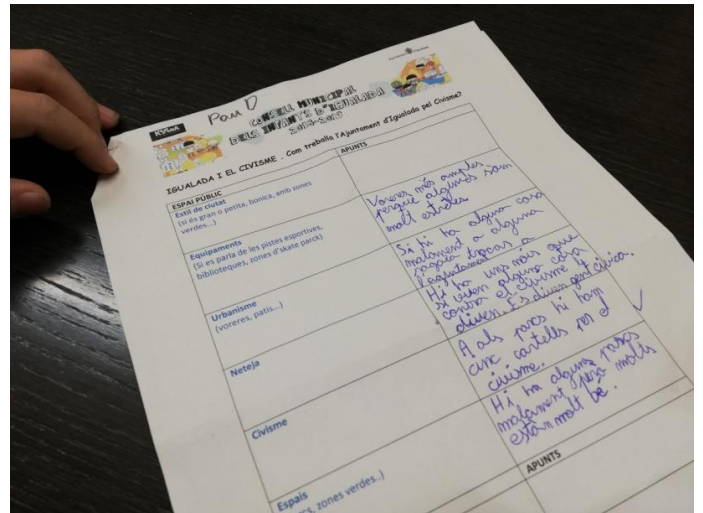 KVIAR
Pau D
CONSELL MUNICIPAL
DELS INFANTS D'IGUALADA
IGUALADA I EL CIVISME . Com treballa l'Ajuntament d'Igualada pel Civisme?
ESPAI PÚBLIC
APUNTS
Estil de ciutat
(si és gran o petita, bonica, amb zones
verdes...)
Voreres més amples
perquè algunes som
molt estretes
Equipaments
(Si es parla de les pistes esportives,
biblioteques, zones d'skate parck)
Si hi ha alguna cosa
malament a alguna
l'ajuntament
Urbanisme
(voreres, patis...)
Hi ha uns nois que
si veuen alguna cosa
contra el civisme t
diuen. Es diuen gent cívica.
Neteja
A als parcs hi ham
cinc cartells per el
civisme.
Civisme
Hi ha alguns parcs
malament però molts
estàn molt bé.
Espais
zones verdes..)
APUNTS